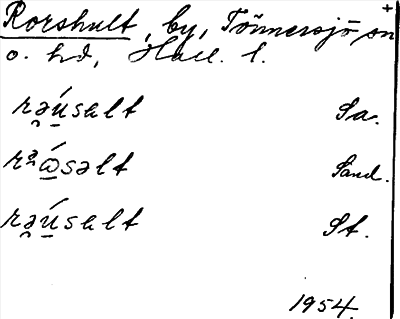 Rorshult, by, Tönnersjö sn +
o. hd, Hall. l.
rə̯ú̱salt Sa.
rᵊώ̱səlt Sand.
rə̯ú̱salt St.
1954.